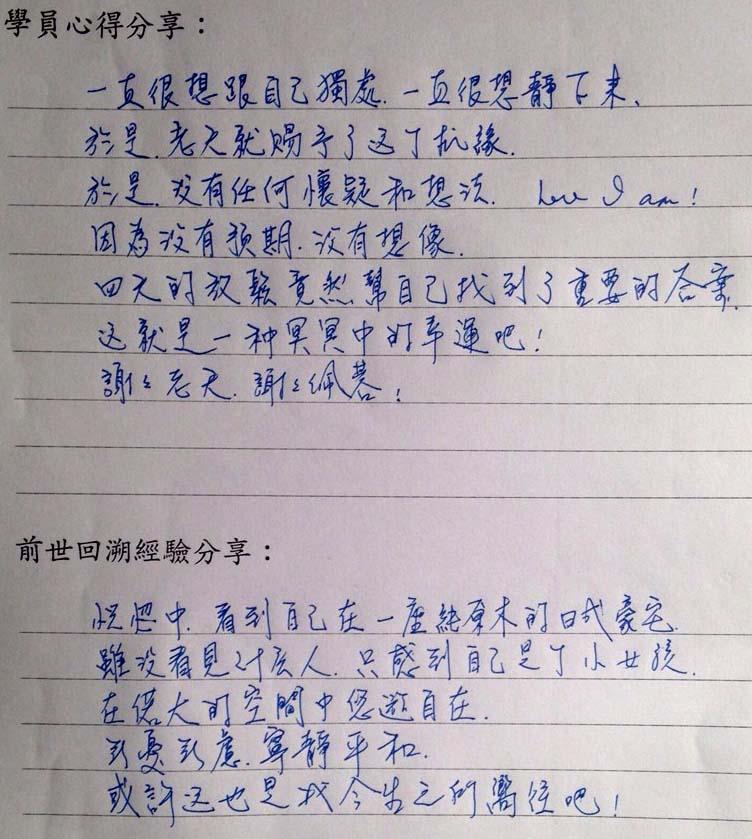 學員心得分享：
一直很想跟自己獨處.一直很想靜下來.
於是.老天就賜予了这个机緣.
於是.没有任何懷疑和想法. here I am!
因為没有預期.没有想像.
四天的放鬆竟然幫自己找到了重要的答案.
这就是一种冥冥中的幸運吧!
謝々老天.謝々佩蓉!
前世回溯經驗分享：
恍惚中.看到自己在一座純原木的日式豪宅.
雖没看見什広人.只感到自己是个小女孩.
在偌大的空間中悠遊自在.
无憂无慮.寧靜平和.
或許这也是我今生之所嚮往吧!